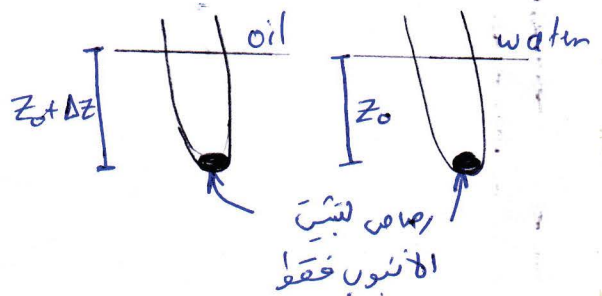 oil
water
Z₀+ΔZ
Z₀
رصاص لتثبيت
الأنبوب فقط